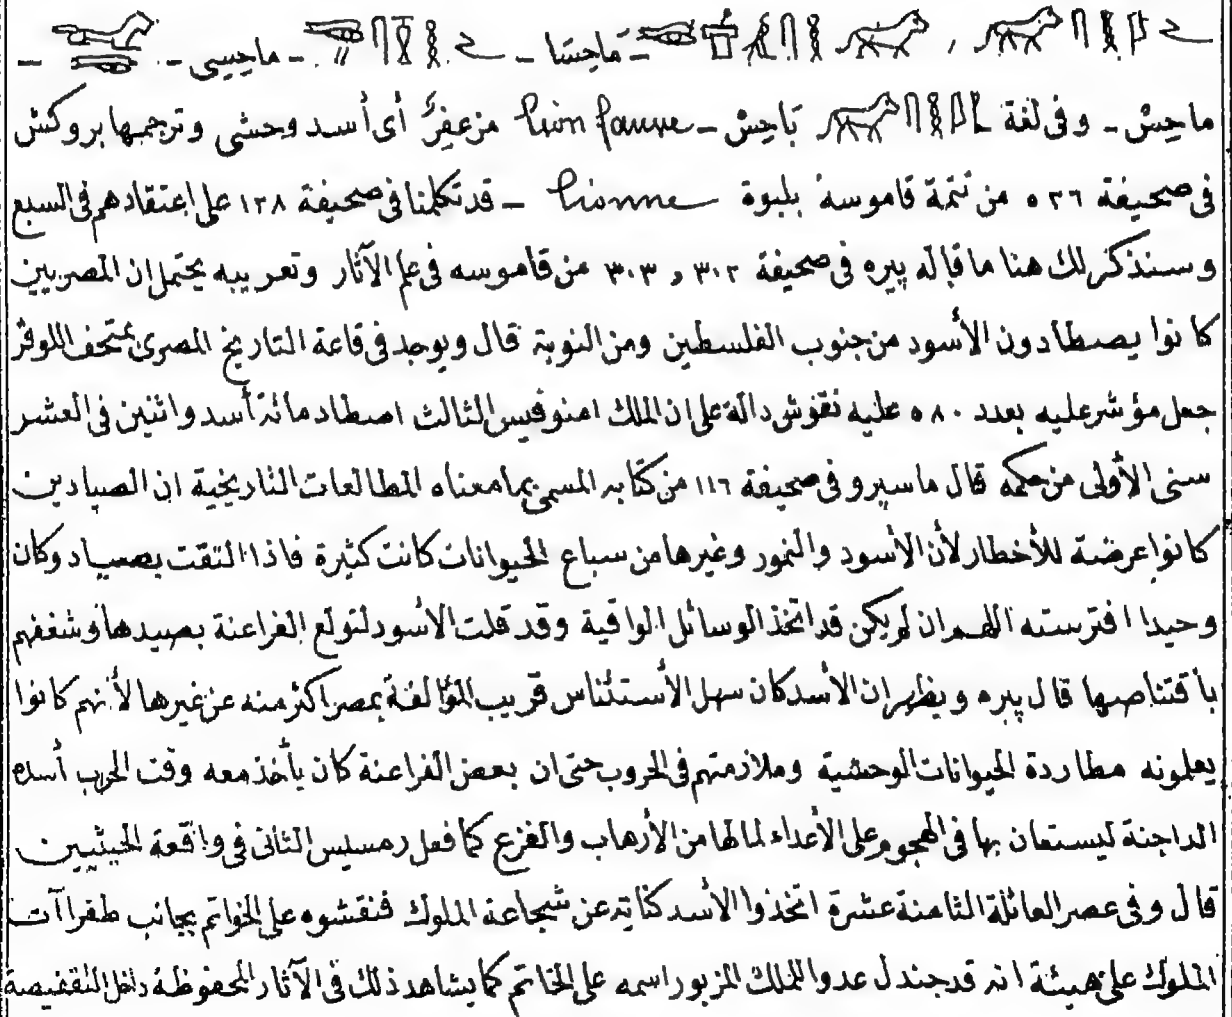 – ماحِسَا – مَاحِسَا – ماحِيسى –
ماحِسْ – وفى لغة بَاحِسْ – Lion fauve مزعفِرَّ أى أسد وحشى وترجمها بروكش
فى صحيفة ٥٣٦ من تتمة قاموسهُ بلبوة Lionne – قد تكلمنا فى صحيفة ١٣٨ على اعتقادهم فى السبع
وسنذكر لك هنا ما قاله پيره فى صحيفة ٣٠٢ و ٣٠٣ من قاموسه فى علم الآثار وتعريبه يحتمل ان المصريين
كانوا يصطادون الأسود من جنوب الفلسطين ومن النوبة قال ويوجد فى قاعة التاريخ المصرى بمتحف اللوڤر
جعل مؤشر عليه بعدد ٥٨٠ عليه نقوش دالة على ان الملك امنوفيس الثالث اصطاد مائة أسد واثنين فى العشر
سنى الأولى من حكمه قال ماسپرو فى صحيفة ١١٦ من كتابه المسمى بما معناه المطالعات التاريخية ان الصيادين
كانوا عرضة للأخطار لأن الأسود والنمور وغيرها من سباع الحيوانات كانت كثيرة فاذا التقت بصياد وكان
وحيدا افترسته اللهم ان لم يكن قد اتخذ الوسائل الواقية وقد قلت الأسود لتولع الفراعنة بصيدها وشغفهم
بأقتناصها قال پيره ويظهر ان الأسد كان سهل الأستئناس قريب المؤالفة بمصر اكثر منه عن غيرها لأنهم كانوا
يعلمونه مطاردة الحيوانات الوحشية وملازمتهم فى الحروب حتى ان بعض الفراعنة كان يأخذ معه وقت الحرب أسده
الداجنة ليستعان بها فى الهجوم على الأعداء لما لها من الأرهاب والفزع كما فعل رمسيس الثانى فى واقعة الحيثيين
قال وفى عصر العائلة الثامنة عشرة اتخذوا الأسد كناية عن شجاعة الملوك فنقشوه على الخواتم بجانب طغراآت
الملوك على هيئة انه قد جندل عدوا للملك المزبور اسمه على الخاتم كما يشاهد ذلك فى الآثار المحفوظة داخل التقفيصة